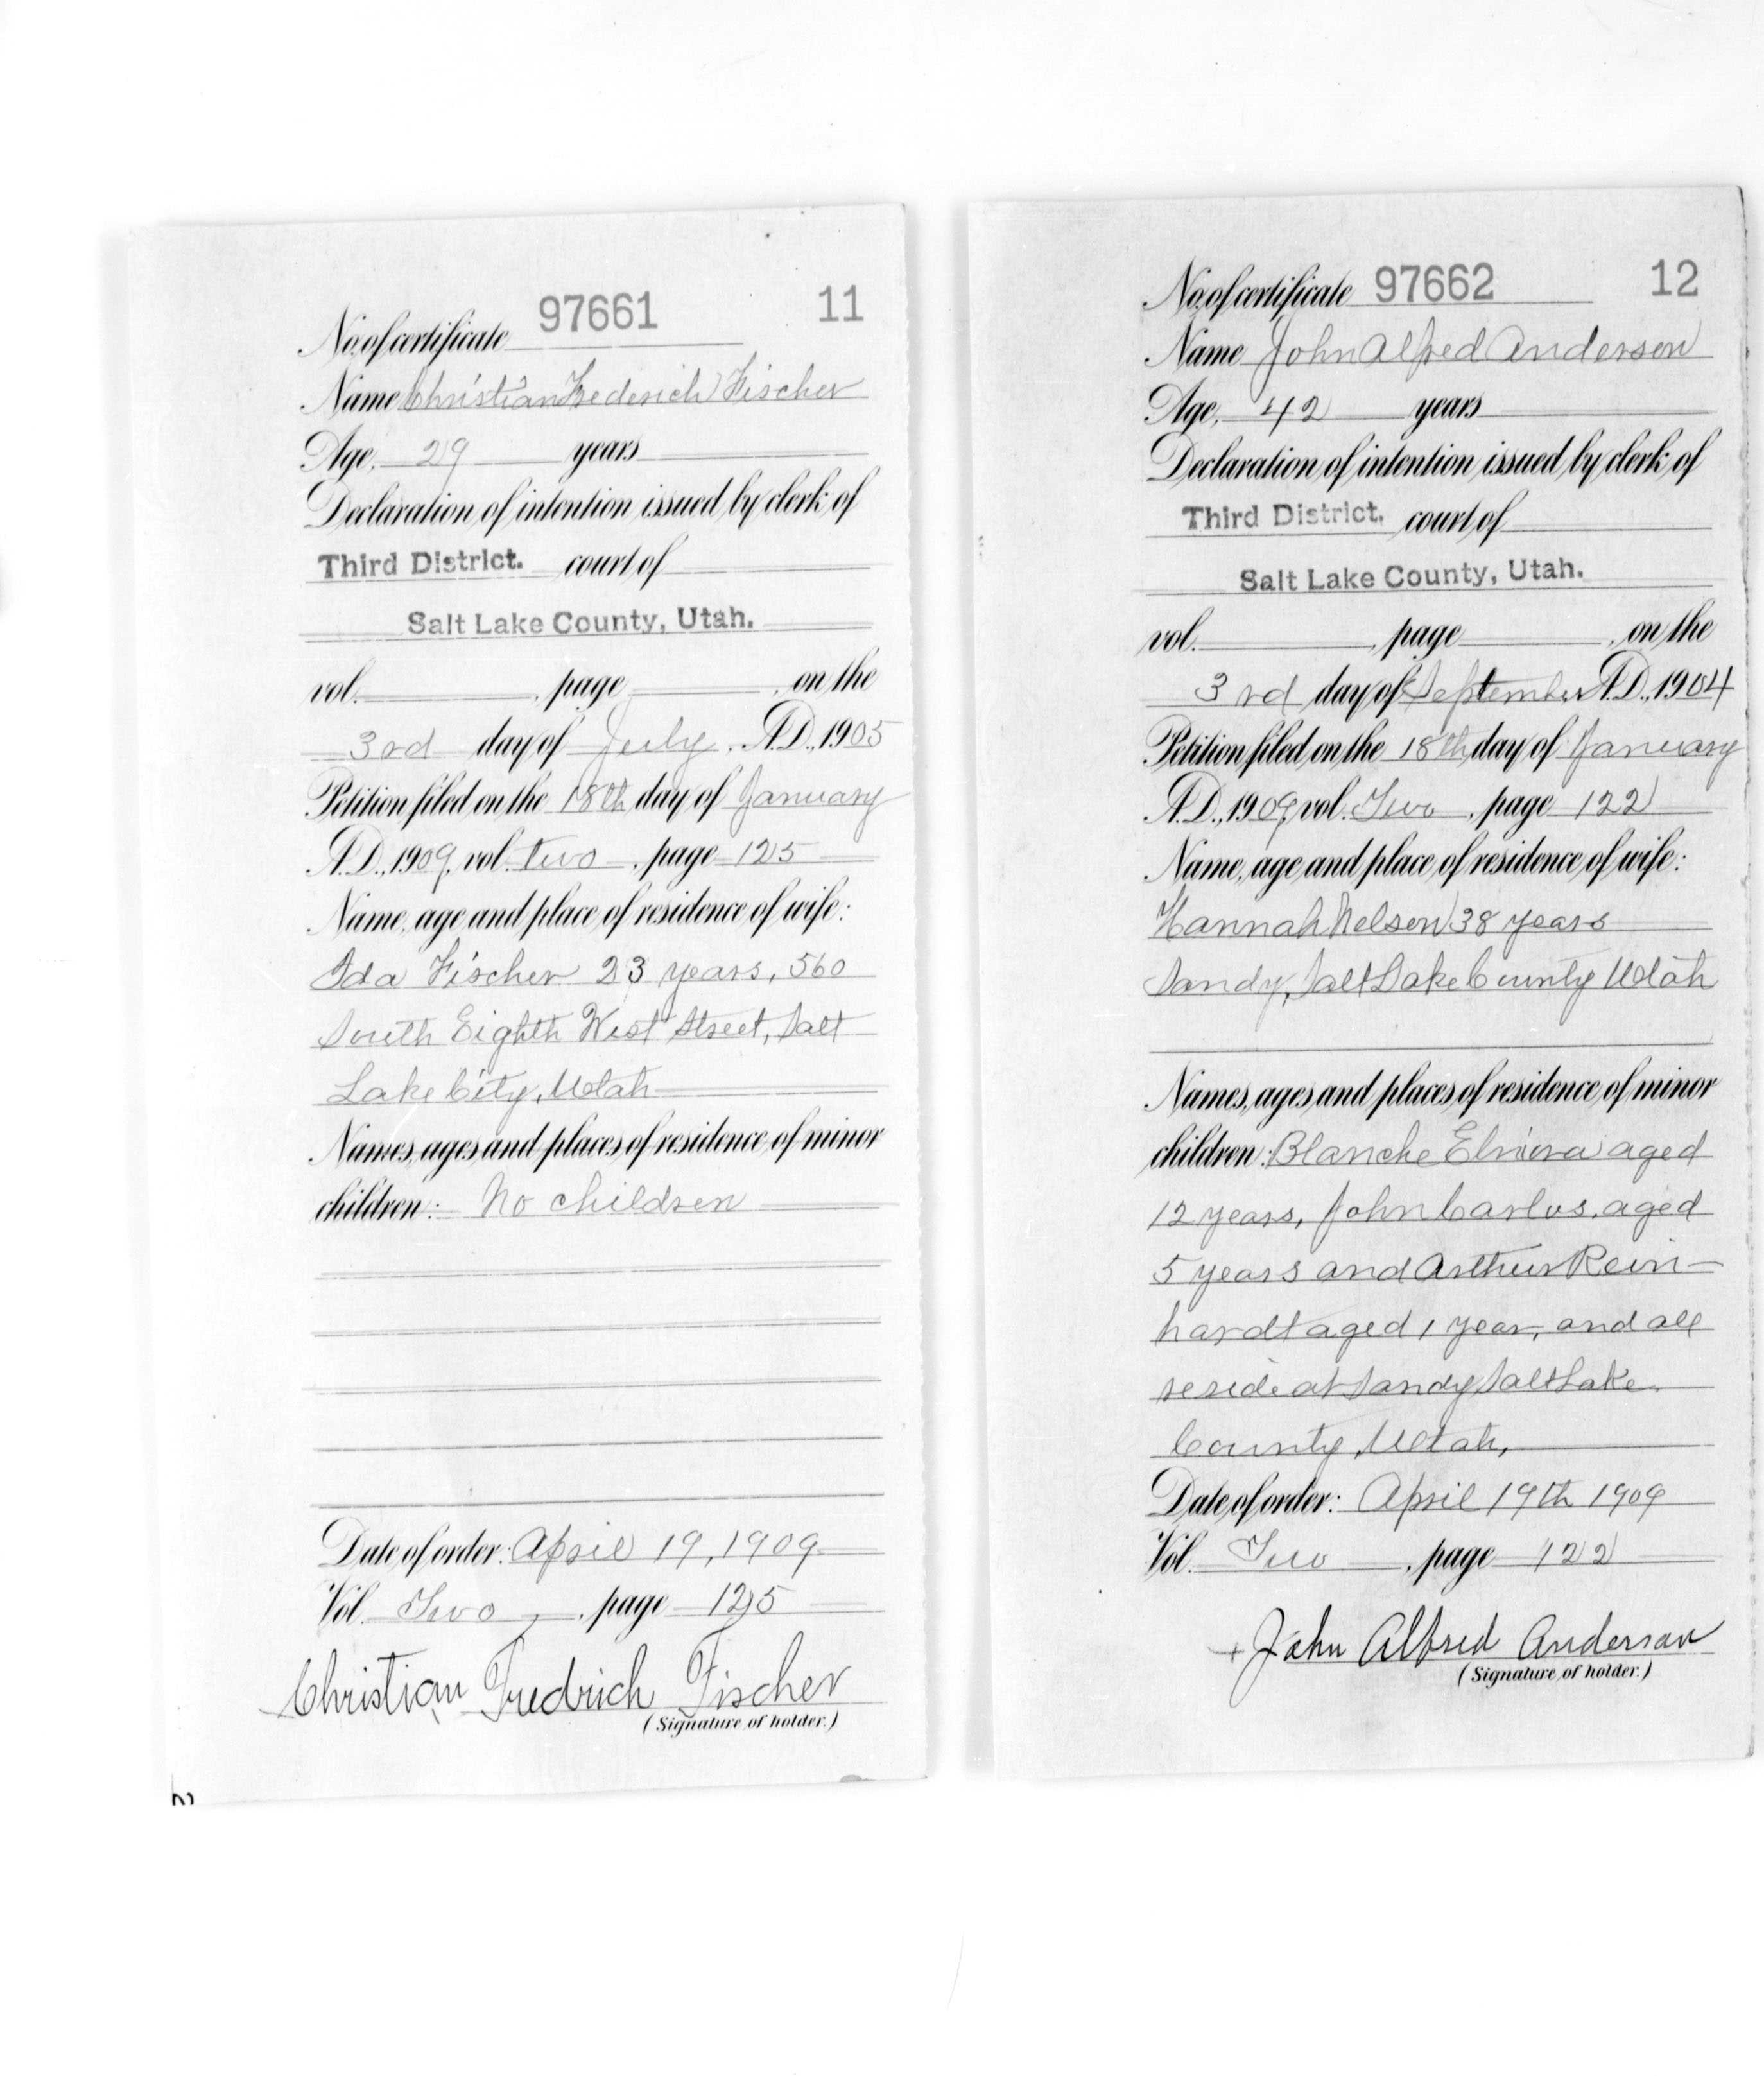 97661 11
No. of certificate
Name Christian Frederich Fischer
Age, 29 years
Declaration of intention issued by clerk of
Third District. court of
Salt Lake County, Utah.
vol. , page , on the
3rd day of July, A.D., 1905
Petition filed on the 18th day of January
A.D., 1909, vol. two, page 125
Name, age and place of residence of wife:
Ida Fischer 23 years, 560
South Eighth West Street, Salt
Lake City, Utah
Names, ages and places of residence of minor
children: No children
Date of order: April 19, 1909
Vol. Two, page 125
Christian Fredrich Fischer
(Signature of holder.)
No. of certificate 97662 12
Name John Alfred Anderson
Age, 42 years
Declaration of intention issued by clerk of
Third District. court of
Salt Lake County, Utah.
vol. , page , on the
3rd day of September A.D., 1904
Petition filed on the 18th day of January
A.D., 1909, vol. Two, page 122
Name, age and place of residence of wife:
Hannah Nelson 38 years
Sandy, Salt Lake County Utah
Names, ages and places of residence of minor
children: Blanche Elmira aged
12 years, John Carlos, aged
5 years and Arthur Rein-
hardt aged 1 year, and all
reside at Sandy Salt Lake
County, Utah,
Date of order: April 19th 1909
Vol. Two, page 122
John Alfred Anderson
(Signature of holder.)